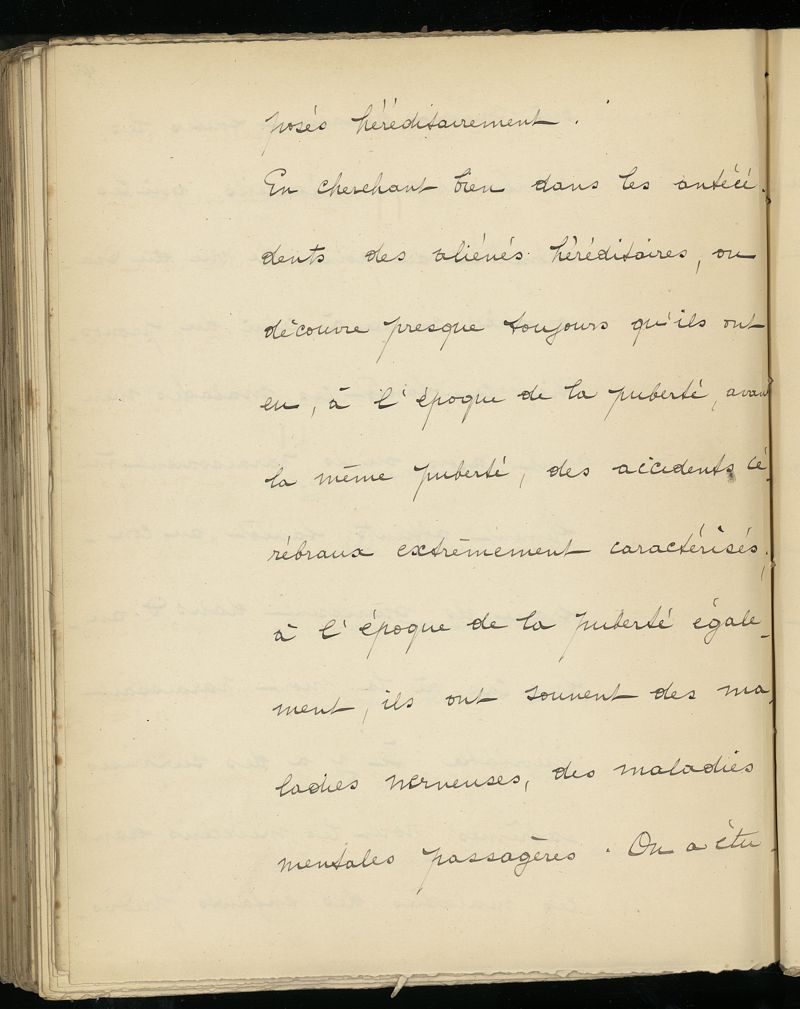 posés héréditairement.
En cherchant bien dans les antécé-
dents des aliénés héréditaires, on
découvre presque toujours qu'ils ont
eu, à l'époque de la puberté, avant
la même puberté, des accidents cé-
rébraux extrêmement caractérisés;
à l'époque de la puberté égale-
ment, ils ont souvent des ma-
ladies nerveuses, des maladies
mentales passagères. On a étu-